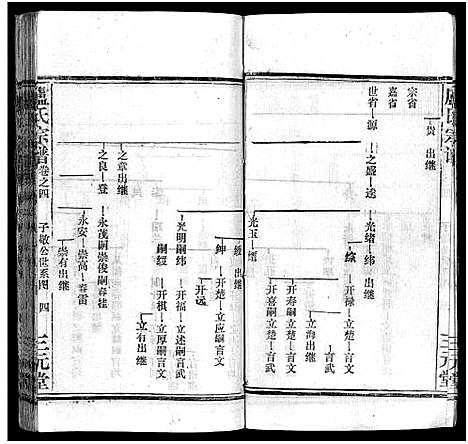 盧氏宗譜
宗省
│貴 出继
嘉省
世省─源 出继
之盛─逵
光绪─纬 出继
综─开禄─立楚 出继
立海出继─言武
开寿嗣立楚─言文
开喜嗣立楚─言武
光玉─缙
绶 出继
绅─开楚─立应嗣言文
开远
光明嗣纬─开福─立述嗣言武
嗣经─开棋─立厚嗣言文
立有出继
之章出继
之良─登─永茂嗣崇俊嗣春桂
永安─崇高─春雷
崇有出继
三元堂
盧氏宗譜 卷之四 子敬公世系图 四 三元堂